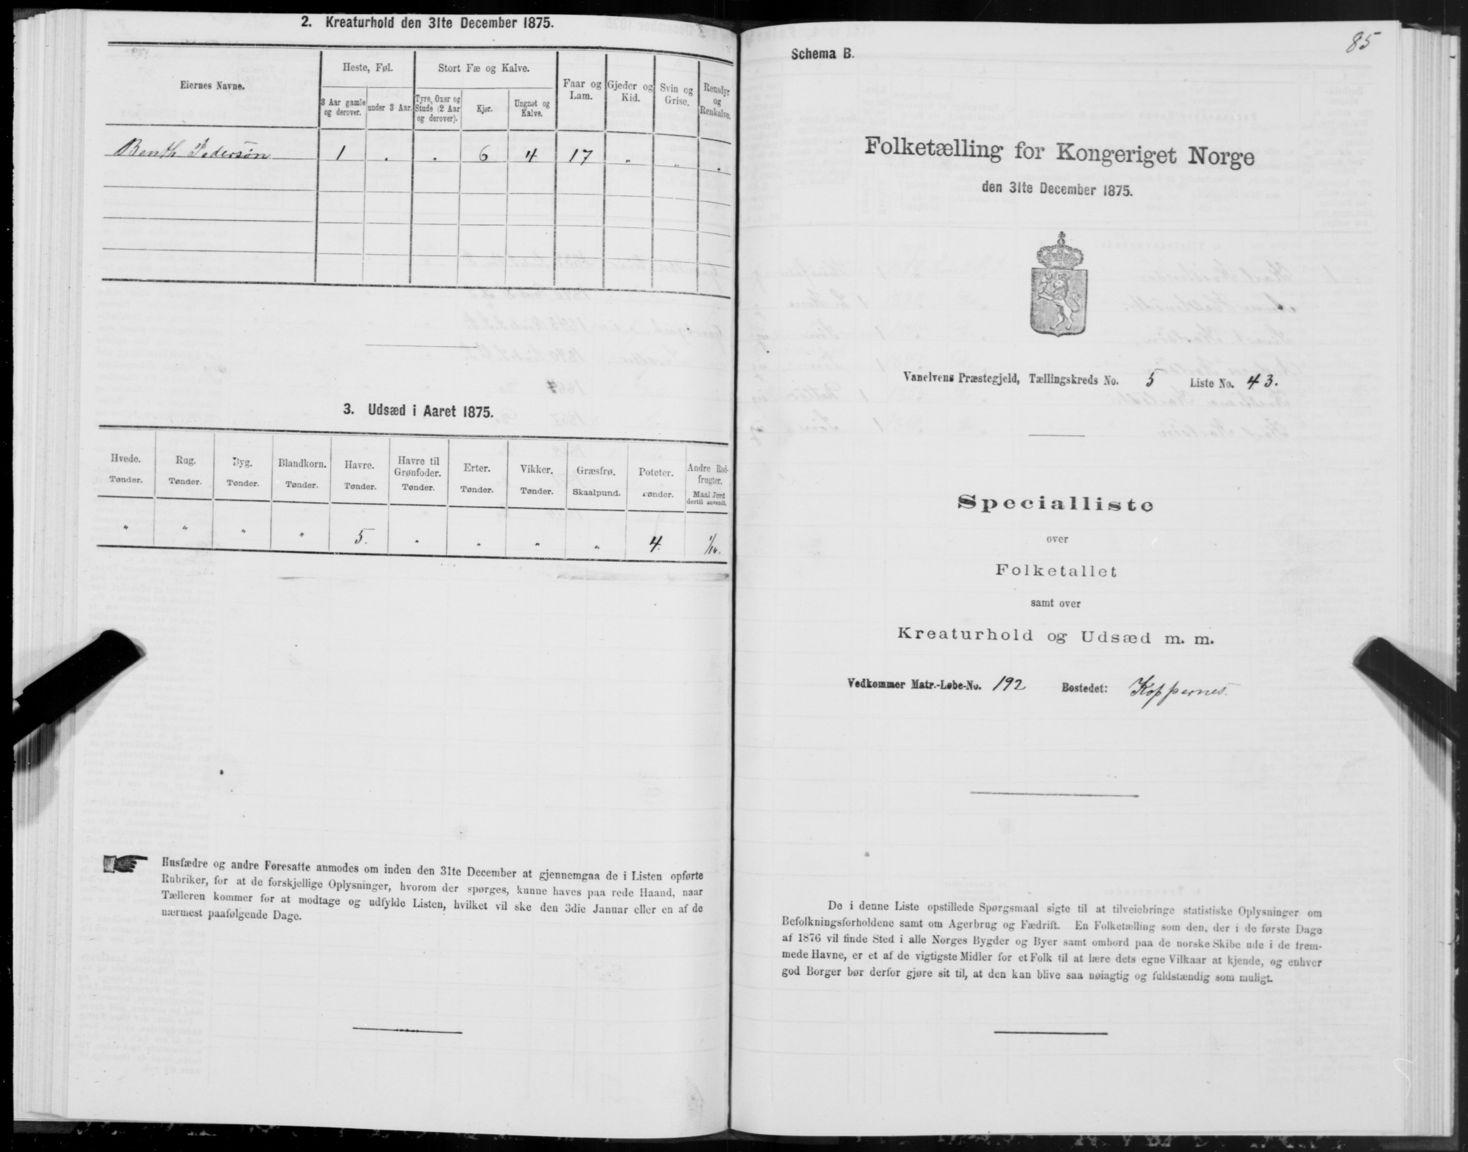 2. Kreaturhold den 31te December 1875.
Eiernes Navne.
Heste, Føl.
Stort Fæ og Kalve.
Faar og Lam.
Gjeder og Kid.
Svin og Grise.
Rensdyr og Renkalve.
3 Aar gamle og derover.
under 3 Aar.
Tyre, Oxer og Stude (2 Aar og derover).
Kjør.
Ungnøt og Kalve.
Benth Pedersøn 1 . . 6 4 17 „ „ .
3. Udsæd i Aaret 1875.
Hvede. Rug. Byg. Blandkorn. Havre. Havre til Grønfoder. Erter. Vikker. Græsfrø. Poteter. Andre Rodfrugter.
Tønder. Tønder. Tønder. Tønder. Tønder. Tønder. Tønder. Tønder. Skaalpund. Tønder. Maal Jord dertil anvendt.
„ „ „ „ 5. „ „ „ „ 4. 1/10.
Husfædre og andre Foresatte anmodes om inden den 31te December at gjennemgaa de i Listen opførte
Rubriker, for at de forskjellige Oplysninger, hvorom der spørges, kunne haves paa rede Haand, naar
Tælleren kommer for at modtage og udfylde Listen, hvilket vil ske den 3die Januar eller en af de
nærmest paafølgende Dage.
85
Schema B.
Folketælling for Kongeriget Norge
den 31te December 1875.
Vanelvens Præstegjeld, Tællingskreds No. 5 Liste No. 43.
Specialliste
over
Folketallet
samt over
Kreaturhold og Udsæd m. m.
Vedkommer Matr.-Løbe-No. 192 Bostedet: Koppernes.
De i denne Liste opstillede Spørgsmaal sigte til at tilveiebringe statistiske Oplysninger om
Befolkningsforholdene samt om Agerbrug og Fædrift. En Folketælling som den, der i de første Dage
af 1876 vil finde Sted i alle Norges Bygder og Byer samt ombord paa de norske Skibe ude i de frem-
mede Havne, er et af de vigtigste Midler for et Folk til at lære dets egne Vilkaar at kjende, og enhver
god Borger bør derfor gjøre sit til, at den kan blive saa nøiagtig og fuldstændig som muligt.